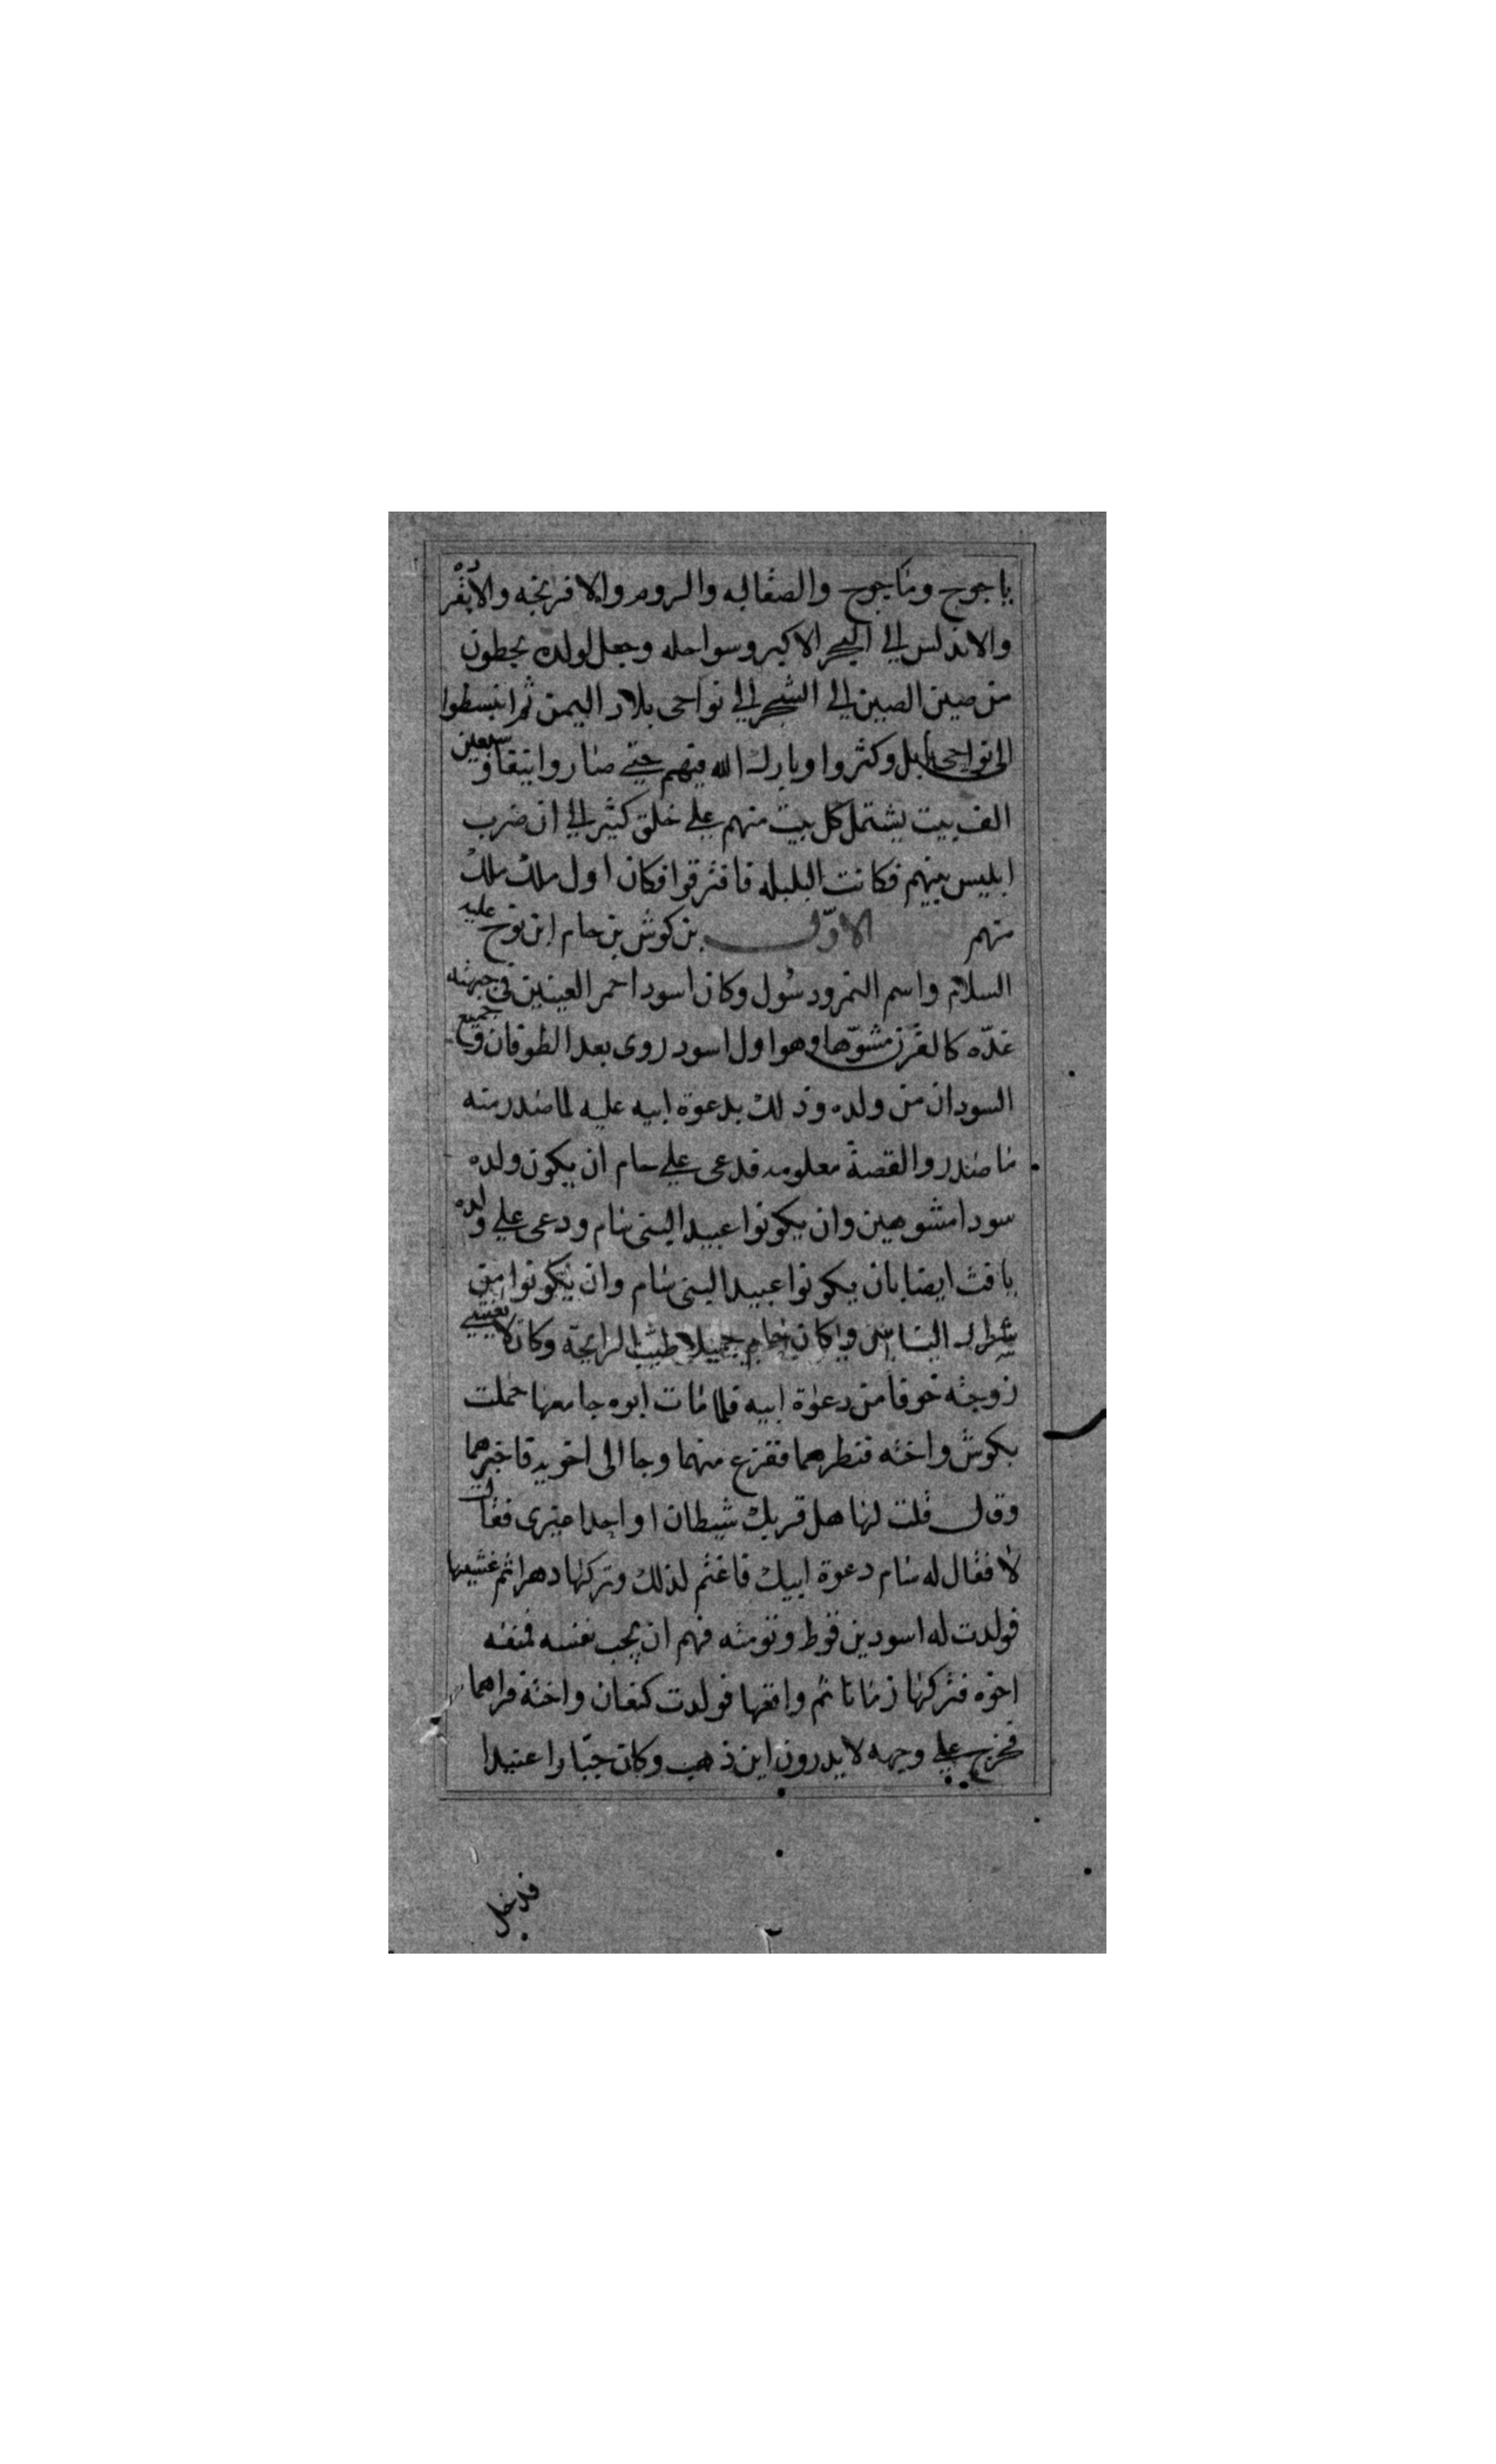 ياجوج وماجوج والصقالبه والروم والافرنجه والابغرده
والاندلس الى البحر الاكبر وسواحله وجعل لولده يحطون
من صين الصين الى الشجر الى نواحى بلاد اليمن ثم انبسطوا
الى نواحى بابل وكثروا وبارك الله فيهم حتى صاروا نيفا وسبعين
الف بيت يشتمل كل بيت منهم على خلق كثير الى ان ضرب
ابليس بينهم فكانت البلبله فافترقوا فكان اول ملك ملك
منهم الاول بن كوش بن حام ابن نوح عليه
السلام واسم النمرود سول وكان اسود احمر العينين فى جبهته
غدّه كالقرن مشوّها وهو اول اسود روى بعد الطوفان وجميع
السودان من ولده وذلك بدعوة ابيه عليه لما صدر منه
ما صدر والقصة معلومه فدعى على حام ان يكون ولده
سودا مشوهين وان يكونوا عبيدا لبنى سام ودعى على ولده
يافث ايضا بان يكونوا عبيدا لبنى سام وان يكونوا من
شرار الناس وكان حام جميلا طيب الرايحة وكان لا يغشى
زوجته خوفا من دعوة ابيه فلما مات ابوه جامعها حملت
بكوش واخته فنظرهما ففزع منهما وجا الى اخويه فاخبرهما
وقال قلت لها هل قربك شيطان او احدا غيرى فقالت
لا فقال له سام دعوة ابيك فاغتم لذلك وتركها دهرا ثم غشيها
فولدت له اسودين قوط وتومته فهم ان يجب نفسه فمنعه
اخوه فتركها زمانا ثم واقعها فولدت كنعان واخته فراهما
فخرج على وجهه لا يدرون اين ذهب وكان جبّارا عنيدا
فدخل